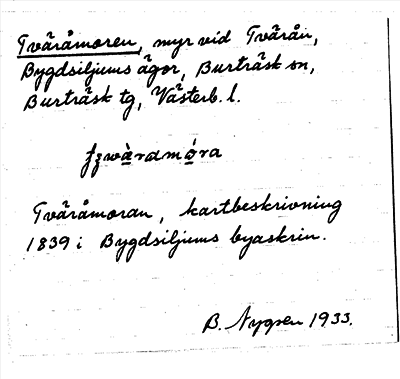 Tväråmoren, myr vid TväråN,
Bygdsiljums ägor, Burträsk sn,
Burträsk tg, Västerb. l.
Tväråmoran, kartbeskrivning
1839 i Bygdsiljums byaskrin.
B. Nygren 1933.